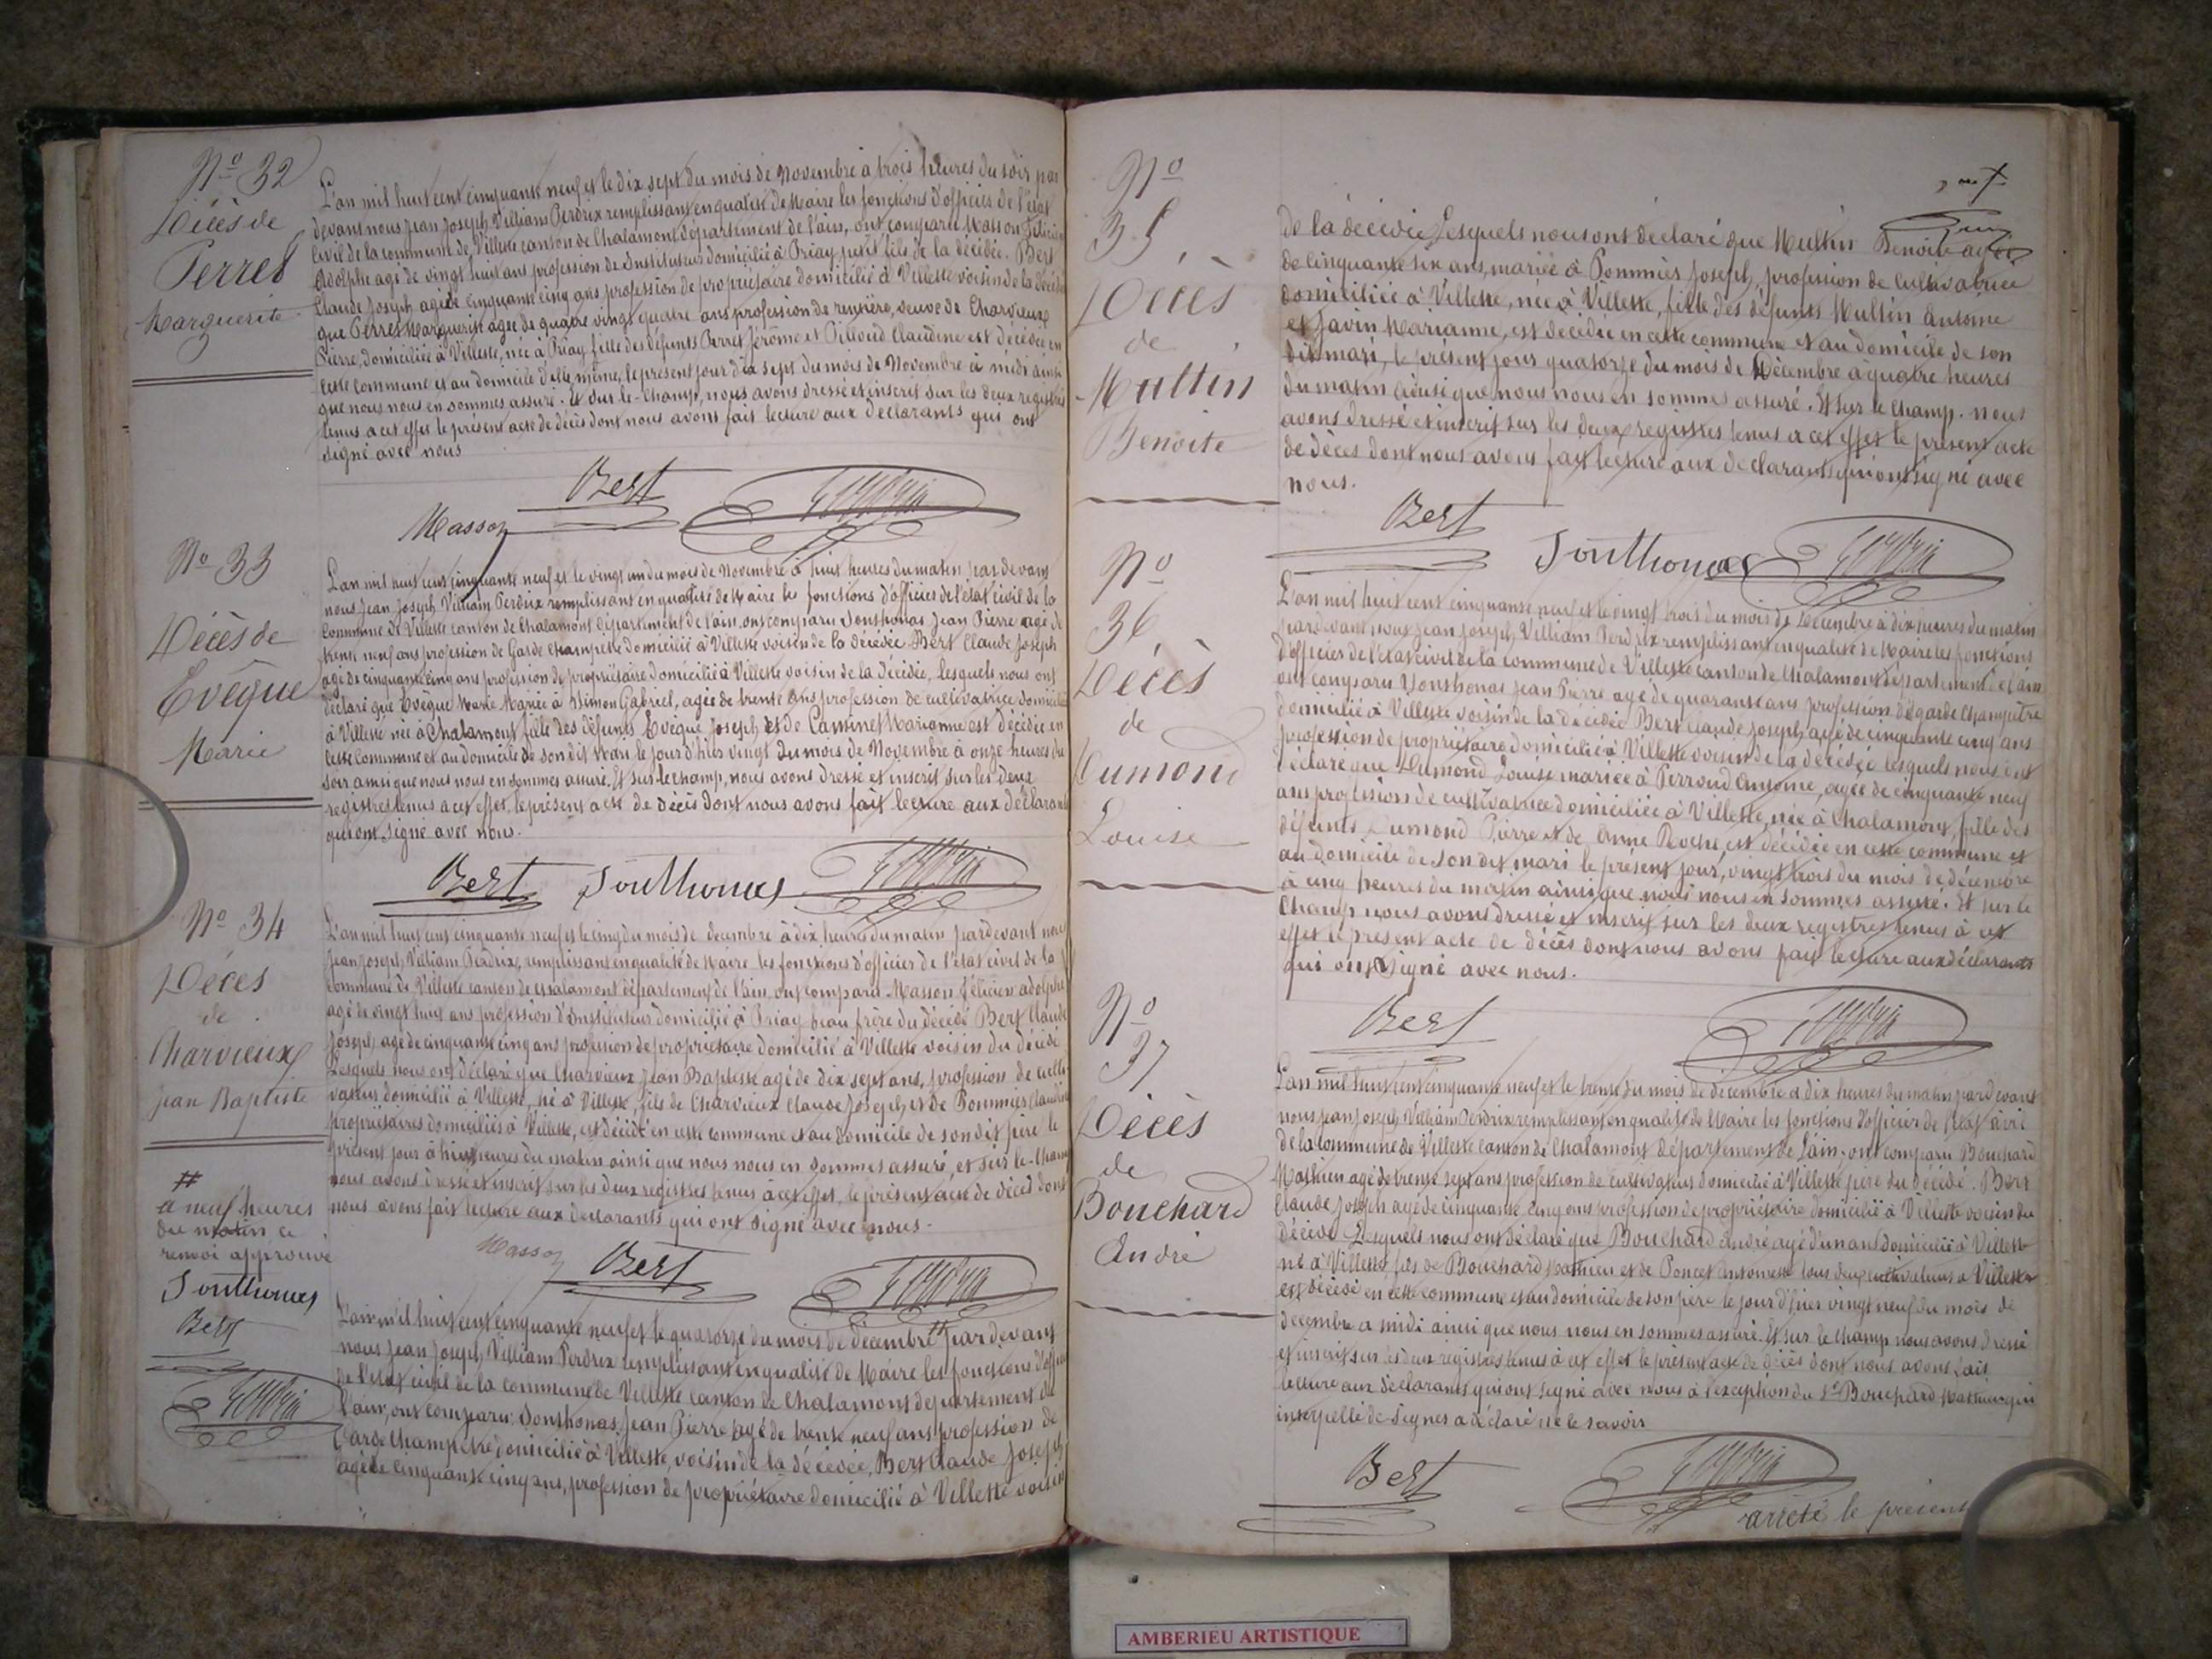 No 32
Décès de
Perret
Marguerite
L'an mil huit cent cinquante neuf et le dix sept du mois de Novembre à trois heures du soir par
devant nous Jean Joseph Villiam Perdrix remplissant en qualité de Maire les fonctions d'officier de l'état
civil de la commune de Villette canton de Chalamont département de l'ain, ont comparu Masson Félicien
Adolphe agé de vingt huit ans profession de Instituteur domicilié à Priay petit fils de la décédée. Bert
Claude Joseph agé de cinquante cinq ans profession de propriétaire domicilié à Villette voisin de la décédée
que Perret Marguerite agée de quatre vingt quatre ans profession de rentière, veuve de Charvieux
Pierre, domiciliée à Villette, née à Priay fille des défunts Perret Jérôme et Pilloud Claudine est décédée en
cette commune et au domicile d'elle même, le présent jour dix sept du mois de Novembre à midi ainsi
que nous nous en sommes assuré. Et sur le-champ, nous avons dressé et inscrit sur les deux registres
tenus a cet effet le présent acte de décès dont nous avons fait lecture aux déclarants qui ont
signé avec nous
Masson Bert
No 33
Décès de
Evêque
Marie
L'an mil huit cent cinquante neuf et le vingt un du mois de Novembre à huit heures du matin par devant
nous Jean Joseph Villiam Perdrix remplissant en qualité de Maire les fonctions d'officier de l'état civil de la
Commune de Villette canton de Chalamont département de l'ain, ont comparu Jonthonas Jean Pierre agé de
trente neuf ans profession de Garde Champetre domicilié à Villette voisin de la décédée Bert Claude Joseph
agé de cinquante cinq ans profession de propriétaire domicilié à Villette voisin de la décédée, lesquels nous ont
déclaré que Evêque Marie Mariée à Simon Gabriel, agée de trente ans profession de cultivatrice domiciliée
à Villette née à Chalamont fille des défunts Evêque Joseph et de Marianne est décédée en
cette commune et au domicile de son dit mari le jour d'hier vingt du mois de Novembre à onze heures du
soir ainsi que nous nous en sommes assuré. Et sur le champ, nous avons dressé et inscrit sur les deux
registres tenus a cet effet, le présent acte de décès dont nous avons fait lecture aux déclarants
qui ont signé avec nous.
Bert Jonthonas
No 34
Décès
de
Charvieux
Jean Baptiste
L'an mil huit cent cinquante neuf et le cinq du mois de decembre à dix heures du matin par devant nous
Jean Joseph Villiam Perdrix, remplissant en qualité de Maire les fonctions d'officier de l'état civil de la
commune de Villette canton de Chalamont département de l'ain, ont comparu Masson félicien adolphe
agé de vingt huit ans profession d'Instituteur domicilié à Priay beau frère du décédé Bert Claude
Joseph agé de cinquante cinq ans profession de propriétaire domicilié à Villette voisin du décédé
Lesquels nous ont déclaré que Charvieux Jean Baptiste agé de dix sept ans, profession de culti-
vateur domicilié à Villette, né à Villette, fils de Charvieux Claude Joseph et de Pommier Claudine
propriétaires domiciliés à Villette, est décédé en cette commune et au domicile de son dit père le
présent jour à huit heures du matin ainsi que nous nous en sommes assuré, et sur le-champ
nous avons dressé et inscrit sur les deux registres tenus à cet effet, le présent acte de décès dont
nous avons fait lecture aux declarants qui ont signé avec nous.
Masson Bert
#
a neuf heures
du matin ce
renvoi approuvé
Jonthonas
Bert
L'an mil huit cent cinquante neuf et le quatorze du mois de decembre # par devant
nous Jean Joseph Villiam Perdrix remplissant en qualité de Maire les fonctions d'officier
de l'état civil de la commune de Villette canton de Chalamont departement de
l'ain, ont comparu: Jonthonas Jean Pierre agé de trente neuf ans profession de
Garde Champetre domicilié à Villette, voisin de la décédée, Bert Claude Joseph
agé de cinquante cinq ans, profession de propriétaire domicilié à Villette voisin
No
35
Décès
de
Multin
Benoite
de la décédée Lesquels nous ont déclaré que Multin Benoite agée
de cinquante six ans, mariée à Pommier Joseph, profession de cultivatrice
domiciliée à Villette, née à Villette, fille des défunts Multin Antoine
et Javin Marianne, est décédée en cette commune et au domicile de son
dit mari, le présent jour quatorze du mois de Décembre à quatre heures
du matin ainsi que nous nous en sommes assuré. Et sur le champ. nous
avons dressé et inscrit sur les deux registres tenus a cet effet le présent acte
de décès dont nous avons fait lecture aux declarants qui ont signé avec
nous.
Bert Jonthonas
No
36
Décès
de
Dumond
Louise
L'an mil huit cent cinquante neuf et le vingt trois du mois de Décembre à dix heures du matin
par devant nous Jean Joseph Villiam Perdrix remplissant en qualité de Maire les fonctions
d'officier de l'état civil de la commune de Villette canton de Chalamont département de l'ain
ont comparu Jonthonas Jean Pierre agé de quarante ans profession de garde Champetre
domicilié à Villette voisin de la décédée Bert Claude Joseph agé de cinquante cinq ans
profession de propriétaire domicilié à Villette voisin de la décédée lesquels nous ont
déclaré que Dumond Louise mariée à Perroud Antoine, agée de cinquante neuf
ans profession de cultivatrice domiciliée à Villette, née à Chalamont, fille des
défunts Dumond Pierre et de Anne Roche, est décédée en cette commune et
au domicile de son dit mari le présent jour, vingt trois du mois de décembre
à cinq heures du matin ainsi que nous nous en sommes assuré. Et sur le
Champ nous avons dressé et inscrit sur les deux registres tenus à cet
effet le présent acte de décès dont nous avons fait lecture aux déclarants
qui ont signé avec nous.
Bert
No
37
Décès
de
Bouchard
André
L'an mil huit cent cinquante neuf et le trente du mois de décembre à dix heures du matin par devant
nous Jean Joseph Villiam Perdrix remplissant en qualité de Maire les fonctions d'officier de l'état civil
de la commune de Villette canton de Chalamont département de l'ain, ont comparu Bouchard
Mathieu agé de trente sept ans profession de cultivateur domicilié à Villette père du décédé. Bert
Claude Joseph agé de cinquante cinq ans profession de propriétaire domicilié à Villette voisin du
décédé Lesquels nous ont déclaré que Bouchard andré agé d'un ans domicilié à Villette
né à Villette fils de Bouchard Mathieu et de Poncet Antoinette tous deux cultivateurs a Villette
est décédé en cette commune et au domicile de son père le jour d'hier vingt neuf du mois de
decembre a midi ainsi que nous nous en sommes assuré. Et sur le champ nous avons dressé
et inscrit sur les deux registres tenus à cet effet le présent acte de décès dont nous avons fait
lecture aux déclarants qui ont signé avec nous à l'exception du Sr Bouchard Mathieu qui
interpellé de signer a déclaré ne le savoir
Bert
arrêté le présent
AMBERIEU ARTISTIQUE